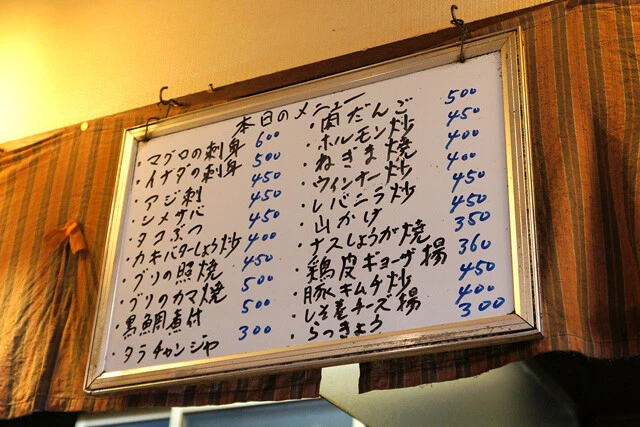 本日のメニュー
・マグロの刺身 600
・イナダの刺身 500
・アジ刺 450
・シメサバ 450
・タコぶつ 450
・カキバターしょう炒 400
・ブリの照焼 450
・ブリのカマ焼 500
・黒鯛煮付 500
・タラチャンジャ 300
・肉だんご 500
・ホルモン炒 450
・ねぎま焼 400
・ウィンナー炒 400
・レバニラ炒 450
・山かけ 450
・ナスしょうが焼 350
・鶏皮ギョーザ揚 360
・豚キムチ炒 450
・しそ巻チーズ揚 400
・らっきょう 300